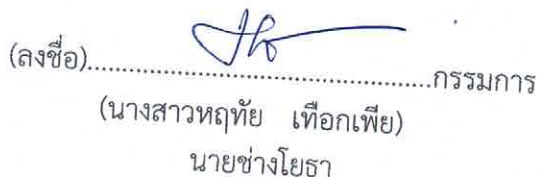 (ลงชื่อ)........................................กรรมการ
(นางสาวหฤทัย เทือกเพีย)
นายช่างโยธา